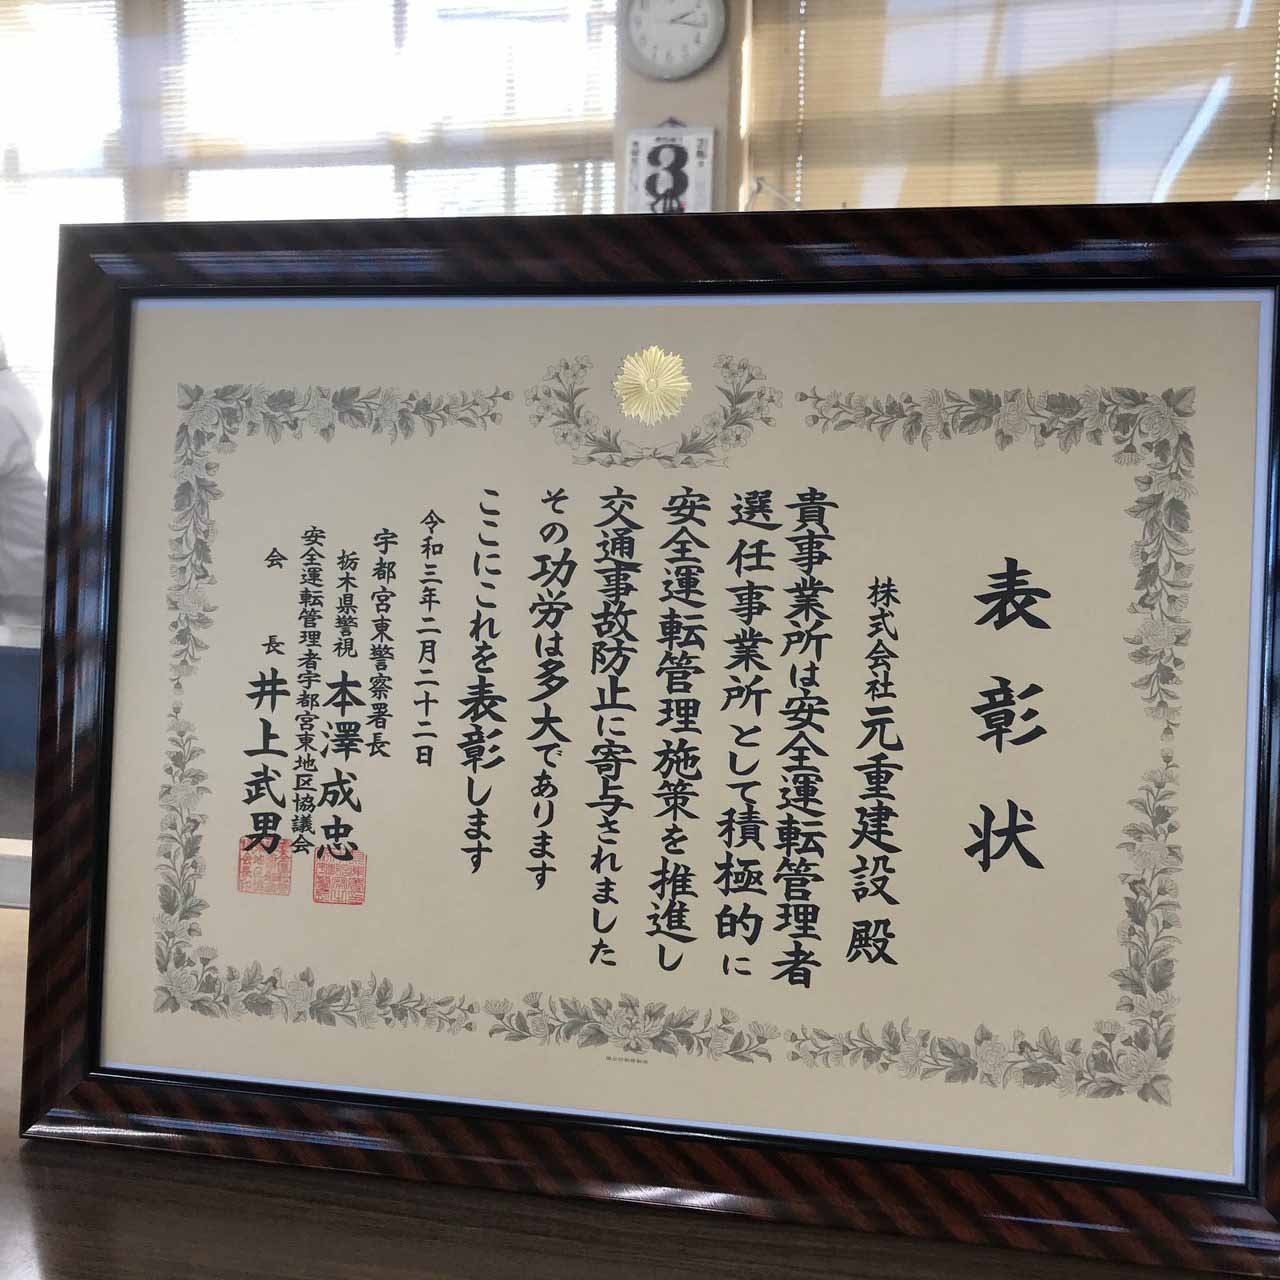 3
表彰状
株式会社元重建設殿
貴事業所は安全運転管理者
選任事業所として積極的に
安全運転管理施策を推進し
交通事故防止に寄与されました
その功労は多大であります
ここにこれを表彰します
令和三年二月二十二日
宇都宮東警察署長
栃木県警視 本澤成忠
安全運転管理者宇都宮東地区協議会
会長 井上武男